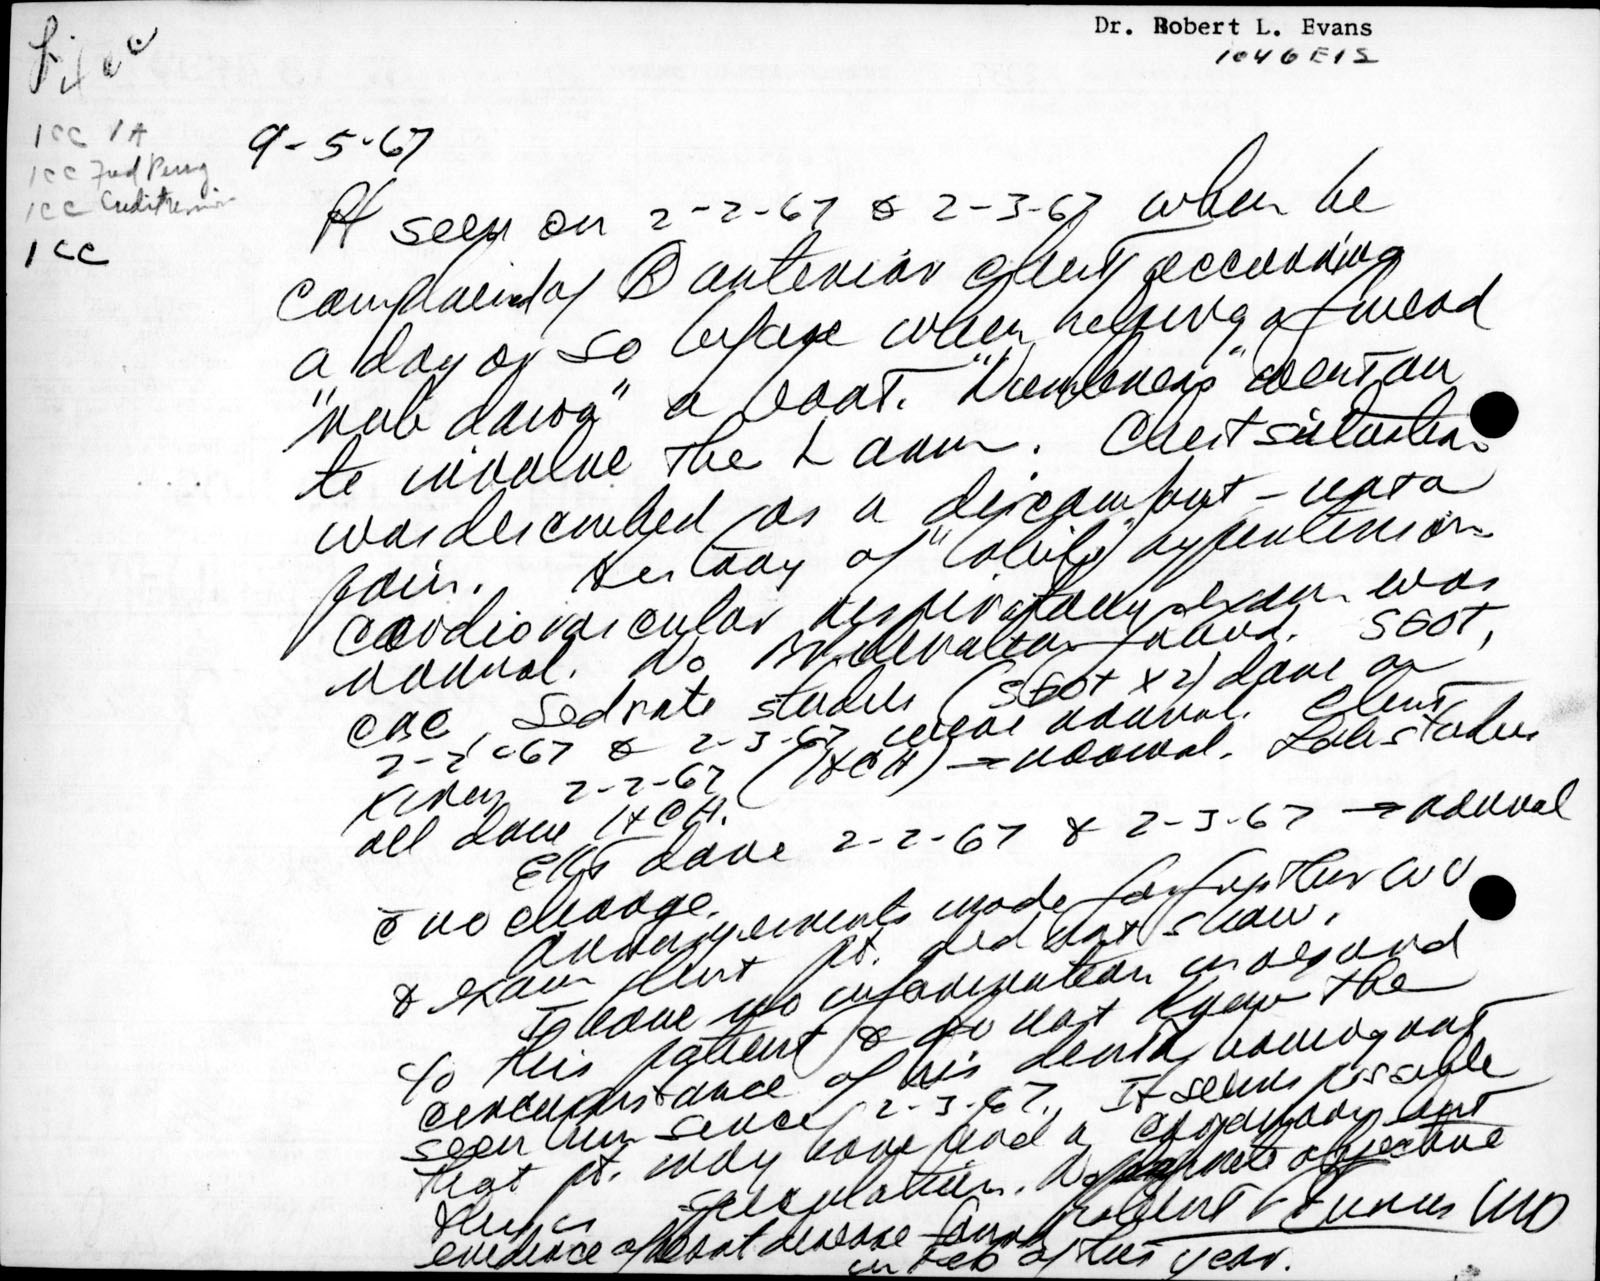 Dr. Robert L. Evans
1046 E 1 S
File
1 CC
1 CC Fred Perry
1 CC
1 CC
9-5-67
Pt seen on 2-2-67 & 2-3-67 when he
complained of Ⓑ anterior chest occurring
a day or so before when helping a friend
"rub down" a boat. "Numbness" went on
to involve the L arm. Chest situation
was described as a discomfort - not a
pain. History of "labile" hypertension
cardiovascular respiratory exam was
normal. No found. SGOT,
CBC, Sed rate studies (SGOT x 2) done on
2-2-67 & 2-3-67 were normal. Chest
X-ray 2-2-67 (H) → normal. Lab studies
all done
EKG done 2-2-67 & 2-3-67 → normal
c̄ no change.
Arrangements made for further
& exam but pt. did not show.
I have no information in regard
to this patient & do not know the
circumstance of his death having not
seen him since 2-3-67. It seems possible
that pt. may have had a coronary but
this is speculation. No objective
evidence of heart disease found
in Feb of this year.
Robert L Evans MD